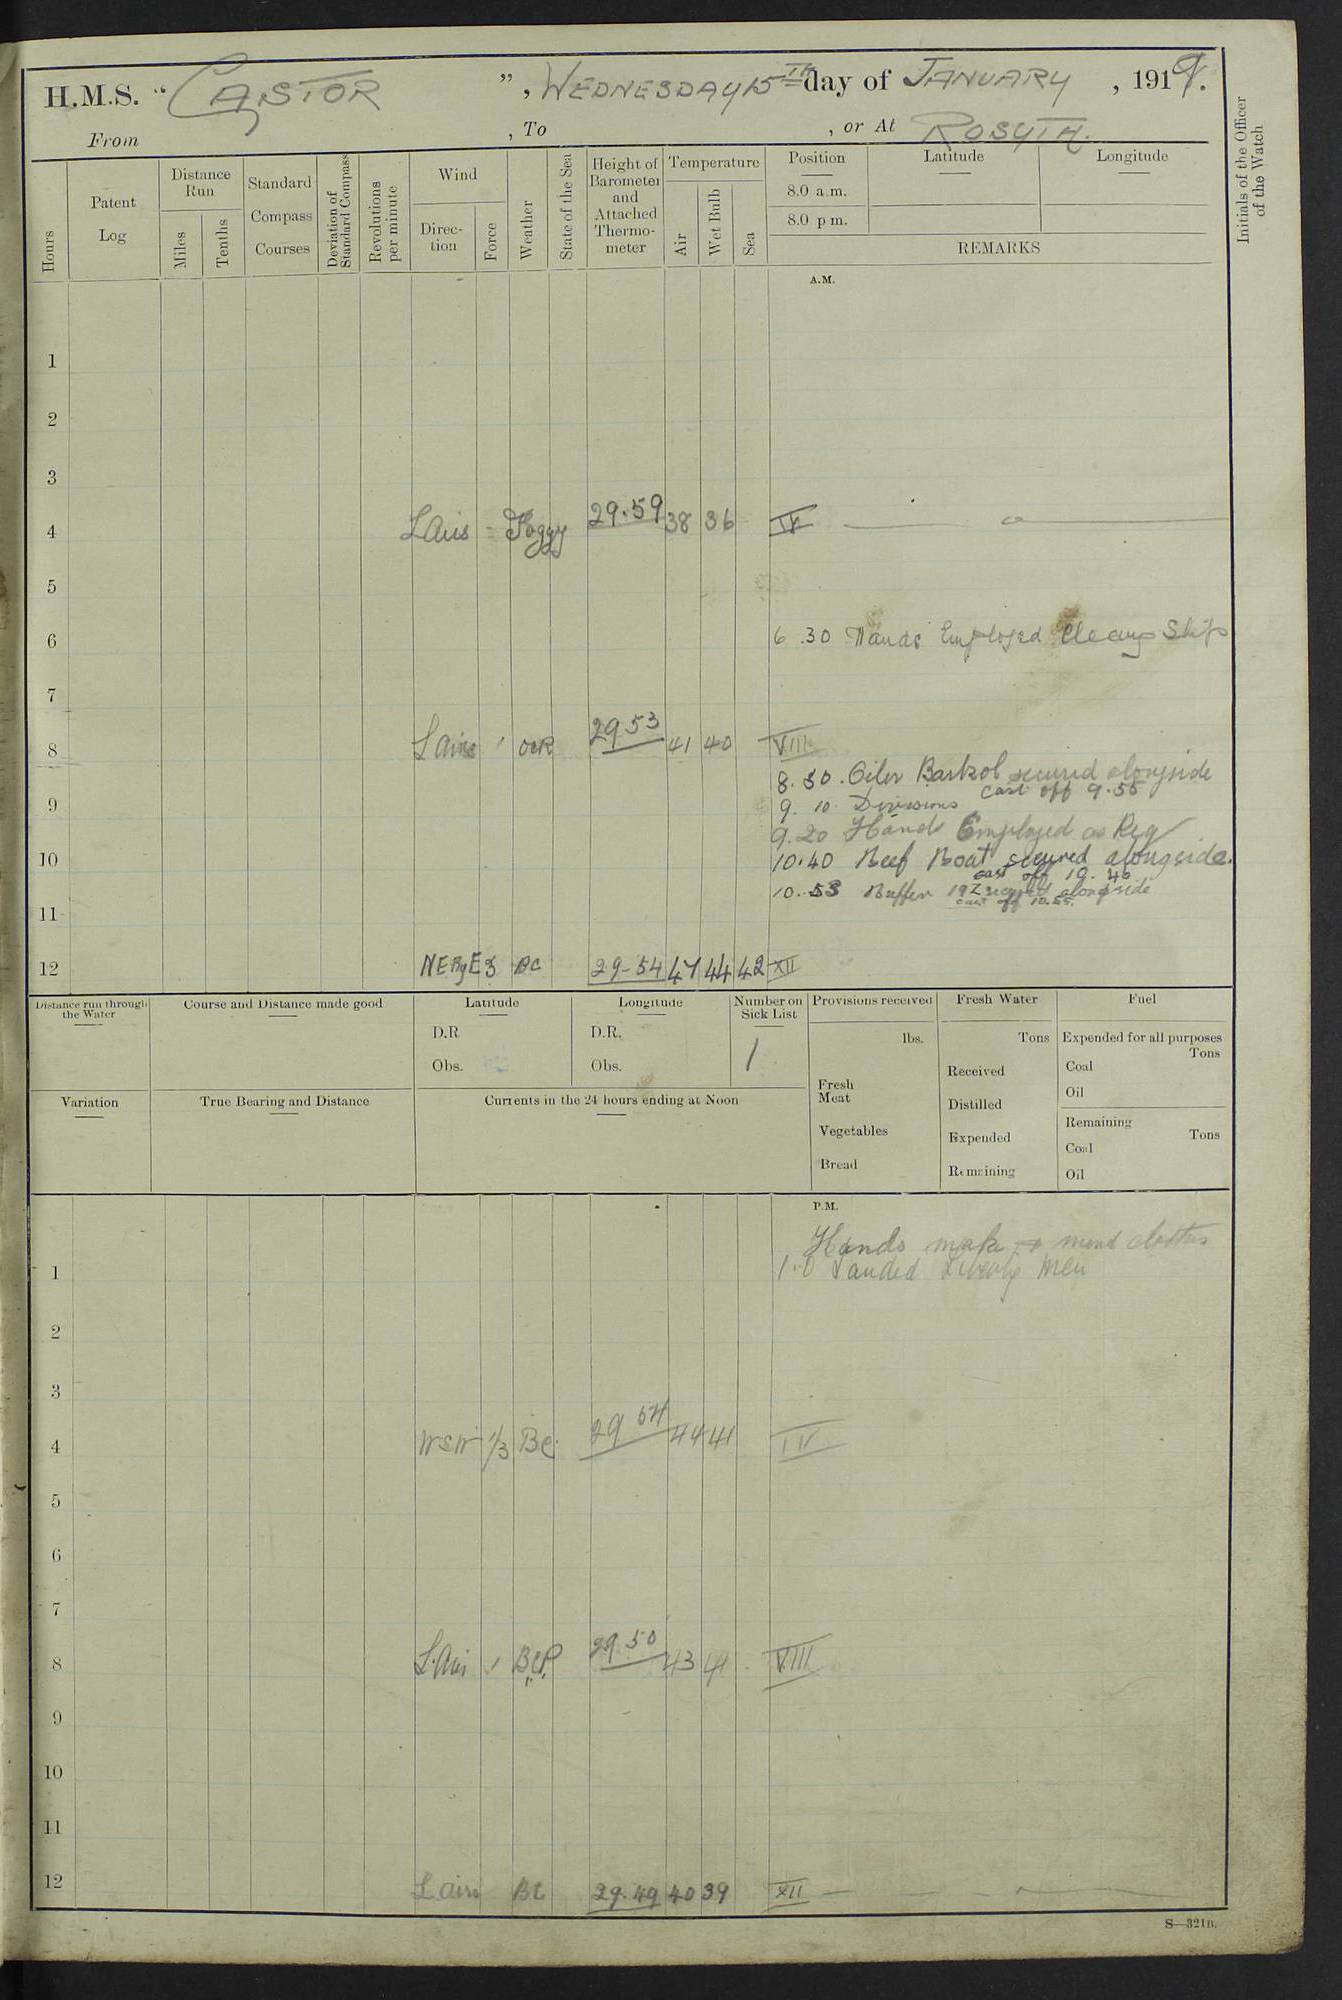 H.M.S. “ CASTOR ”, WEDNESDAY 15TH day of JANUARY , 1919.
From , To , or At ROSYTH.
Hours
Patent Log
Distance Run
Miles
Tenths
Standard Compass Courses
Deviation of Standard Compass
Revolutions per minute
Wind
Direc-tion
Force
Weather
State of the Sea
Height of Barometer and Attached Thermo-meter
Temperature
Air
Wet Bulb
Sea
Position
8.0 a.m.
8.0 p m.
Latitude
Longitude
REMARKS
Initials of the Officer of the Watch
A.M.
1
2
3
4 L Airs - Foggy 29.59 38 36 IV
5
6 6.30 Hands Employed Cleang Ship
7
8 L Airs 1 29.53 41 40 VIII
8.30. Oiler Barkol secured alongside
cast off 9.55
9 9.10 Divisions
9.20 Hands Employed as Req
10 10.40 Beef Boat secured alongside.
cast off 10.40
10.53 secured alongside
cast off 10.55.
11
12 NEByE 3 BC 29-54 47 44 42 XII
Distance run through the Water
Course and Distance made good
Latitude
D.R
Obs.
Longitude
D.R.
Obs.
Number on Sick List
1
Provisions received
lbs.
Fresh Meat
Vegetables
Bread
Fresh Water
Tons
Received
Distilled
Expended
Remaining
Fuel
Expended for all purposes
Tons
Coal
Oil
Remaining
Tons
Coal
Oil
Variation
True Bearing and Distance
Currents in the 24 hours ending at Noon
P.M.
Hands make & mend clothes
1 1.0 Landed Liberty Men
2
3
4 WSW 1/3 BC 29 54 44 41 IV
5
6
7
8 L. Airs 1 BCP 29.50 43 41 VIII
9
10
11
12 L airs BC 29.49 40 39 XII
S—321B.